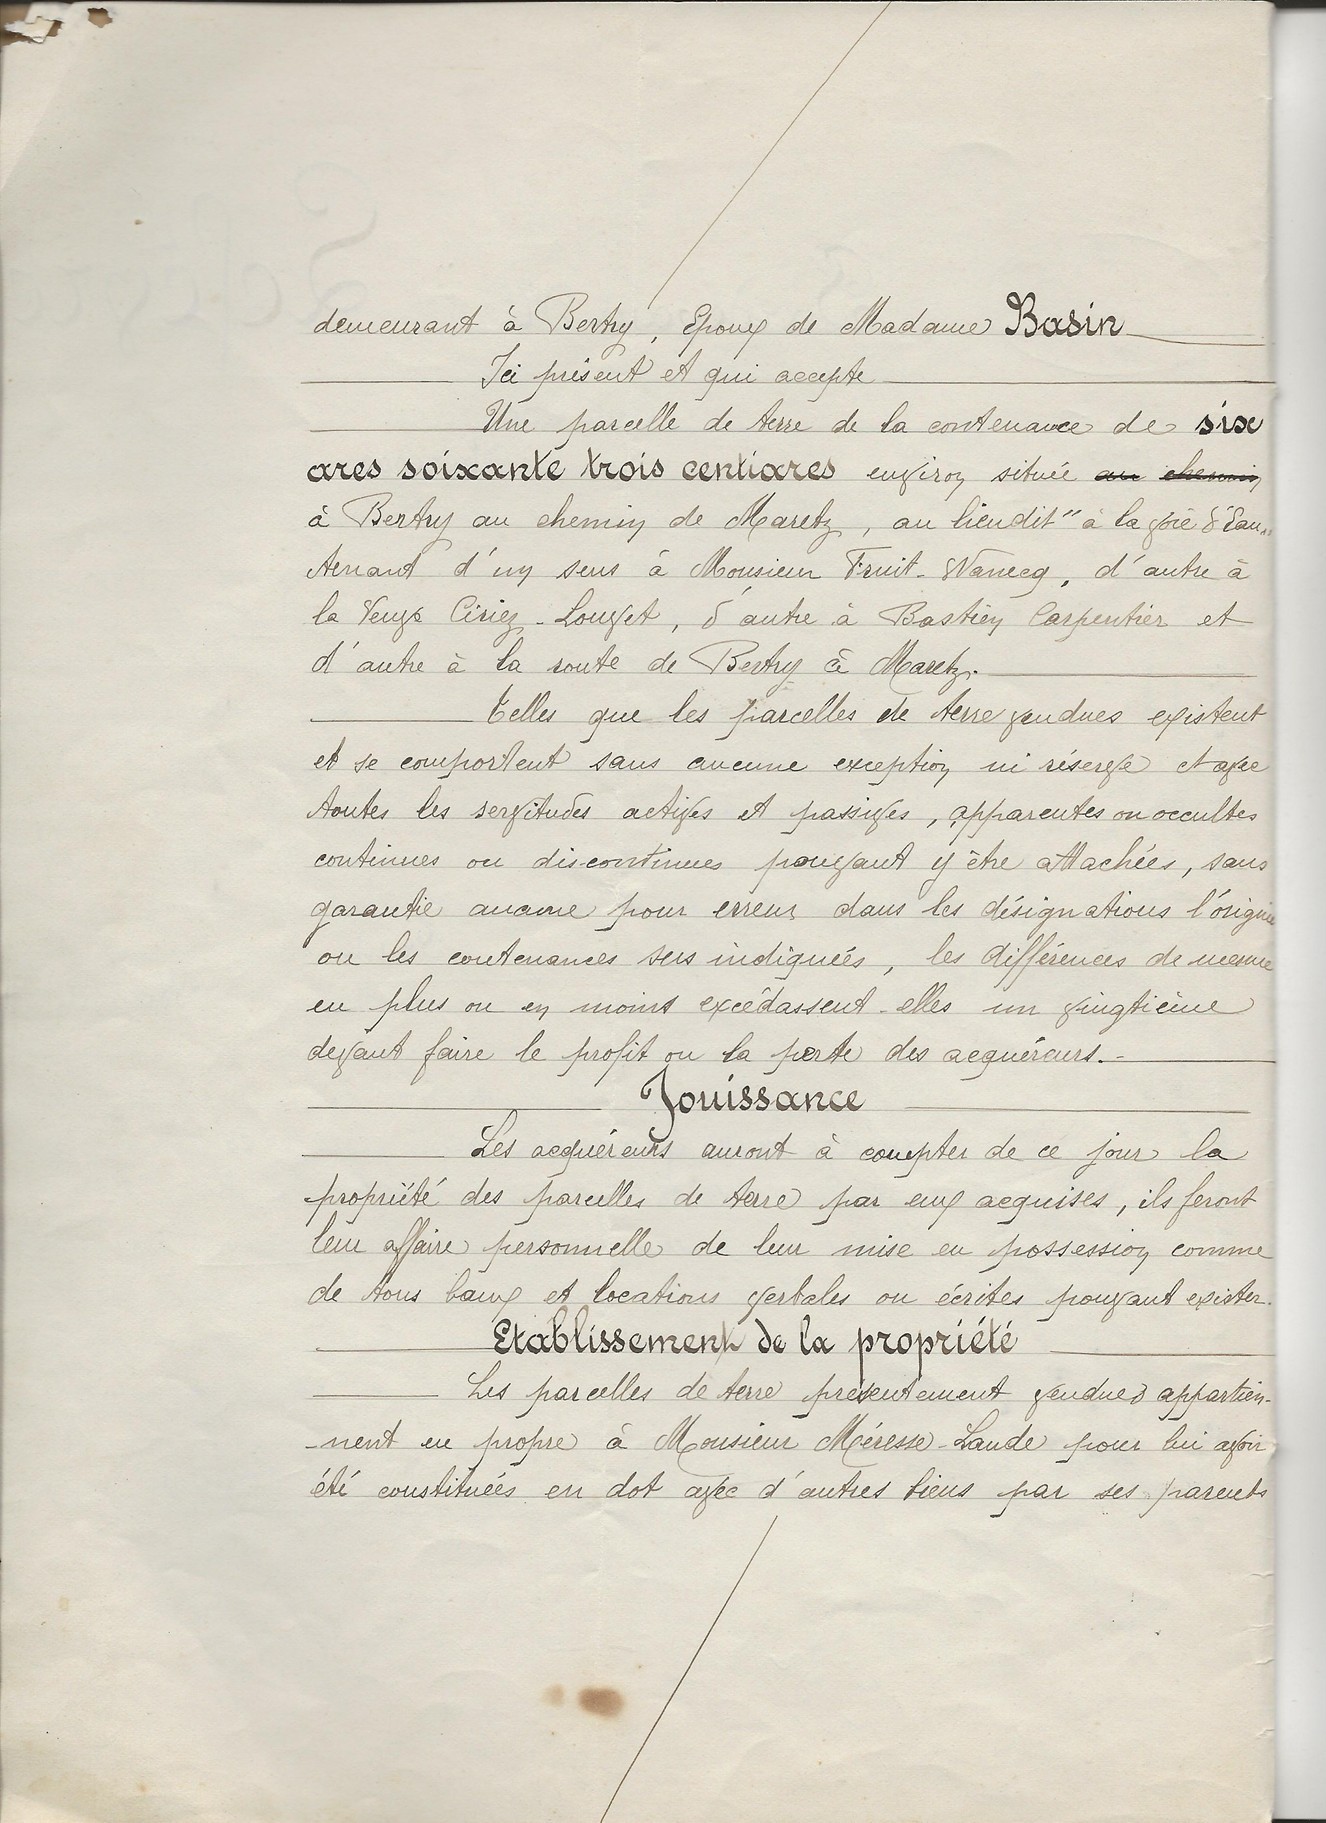 demeurant à Bertry, Epoux de Madame Basin
Ici présent et qui accepte
Une parcelle de terre de la contenance de six
ares soixante trois centiares environ située au chemin
à Bertry au chemin de Maretz, au lieudit "à la voie d'Eau"
tenant d'un sens à Monsieur Fruit-Wanecq, d'autre à
la Veuve Ciriez-Louvet, d'autre à Bastien Carpentier et
d'autre à la route de Bertry à Maretz.
Telles que les parcelles de terre vendues existent
et se comportent sans aucune exception ni réserve et avec
toutes les servitudes actives et passives, apparentes ou occultes
continues ou discontinues pouvant y être attachées, sans
garantie aucune pour erreur dans les désignations l'origine
ou les contenances sus indiquées, les différences de mesure
en plus ou en moins excédassent-elles un vingtième
devant faire le profit ou la perte des acquéreurs.-
Jouissance
Les acquéreurs auront à compter de ce jour la
propriété des parcelles de terre par eux acquises, ils feront
leur affaire personnelle de leur mise en possession comme
de tous baux et locations verbales ou écrites pouvant exister.
Etablissement de la propriété
Les parcelles de terre présentement vendues appartien-
-nent en propre à Monsieur Méresse-Laude pour lui avoir
été constituées en dot avec d'autres biens par ses parents